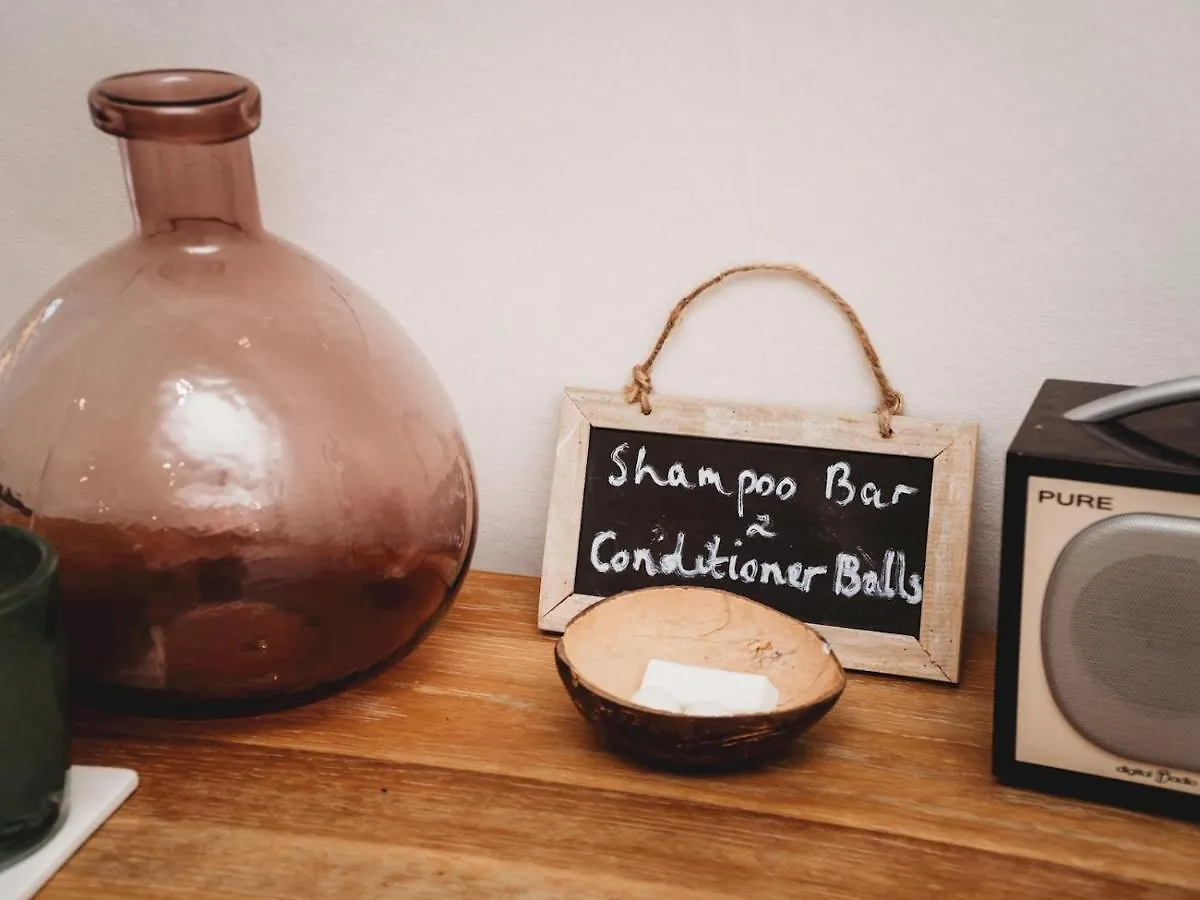 Shampoo Bar
&
Conditioner Balls
PURE
digital radio